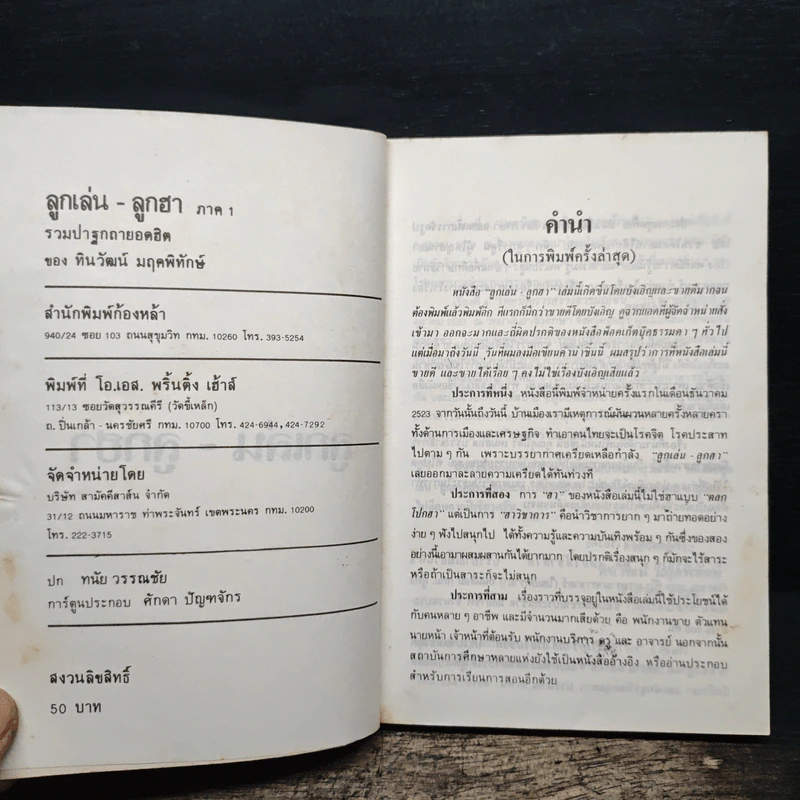 ลูกเล่น - ลูกฮา ภาค 1
รวมปาฐกถายอดฮิต
ของ ทินวัฒน์ มฤคพิทักษ์
สำนักพิมพ์ก้องหล้า
940/24 ซอย 103 ถนนสุขุมวิท กทม. 10260 โทร. 393-5254
พิมพ์ที่ โอ.เอส. พริ้นติ้ง เฮ้าส์
113/13 ซอยวัดสุวรรณคีรี (วัดขี้เหล็ก)
ถ. ปิ่นเกล้า - นครชัยศรี กทม. 10700 โทร. 424-6944, 424-7292
จัดจำหน่ายโดย
บริษัท สามัคคีสาส์น จำกัด
31/12 ถนนมหาราช ท่าพระจันทร์ เขตพระนคร กทม. 10200
โทร. 222-3715
ปก ทนัย วรรณชัย
การ์ตูนประกอบ ศักดา ปัญฑจักร
สงวนลิขสิทธิ์
50 บาท
คำนำ
(ในการพิมพ์ครั้งล่าสุด)
หนังสือ "ลูกเล่น - ลูกฮา" เล่มนี้เกิดขึ้นโดยบังเอิญและขายดีมากจน
ต้องพิมพ์แล้วพิมพ์อีก ทีแรกก็นึกว่าขายดีโดยบังเอิญ ดูจากยอดที่ผู้จัดจำหน่ายสั่ง
เข้ามา ออกจะมากและถี่ผิดปรกติของหนังสือพ็อคเก็ตบุ๊คธรรมดา ๆ ทั่วไป
แต่เมื่อมาถึงวันนี้ วันที่ผมลงมือเขียนคำนำชิ้นนี้ ผมสรุปว่าการที่หนังสือเล่มนี้
ขายดี และขายได้เรื่อย ๆ คงไม่ใช่เรื่องบังเอิญเสียแล้ว
ประการที่หนึ่ง หนังสือนี้พิมพ์จำหน่ายครั้งแรกในเดือนธันวาคม
2523 จากวันนั้นถึงวันนี้ บ้านเมืองเรามีเหตุการณ์ผันผวนหลายครั้งหลายครา
ทั้งด้านการเมืองและเศรษฐกิจ ทำเอาคนไทยจะเป็นโรคจิต โรคประสาท
ไปตาม ๆ กัน เพราะบรรยากาศเครียดเหลือกำลัง "ลูกเล่น - ลูกฮา"
เลยออกมาละลายความเครียดได้ทันท่วงที
ประการที่สอง การ "ฮา" ของหนังสือเล่มนี้ไม่ใช่ฮาแบบ "ตลก
โปกฮา" แต่เป็นการ "ฮาวิชาการ" คือนำวิชาการยาก ๆ มาถ่ายทอดอย่าง
ง่าย ๆ ฟังไปสนุกไป ได้ทั้งความรู้และความบันเทิงพร้อม ๆ กันซึ่งของสอง
อย่างนี้เอามาผสมผสานกันได้ยากมาก โดยปรกติเรื่องสนุก ๆ ก็มักจะไร้สาระ
หรือถ้าเป็นสาระก็จะไม่สนุก
ประการที่สาม เรื่องราวที่บรรจุอยู่ในหนังสือเล่มนี้ใช้ประโยชน์ได้
กับคนหลาย ๆ อาชีพ และมีจำนวนมากเสียด้วย คือ พนักงานขาย ตัวแทน
นายหน้า เจ้าหน้าที่ต้อนรับ พนักงานบริการ ครู และ อาจารย์ นอกจากนั้น
สถาบันการศึกษาหลายแห่งยังใช้เป็นหนังสืออ้างอิง หรืออ่านประกอบ
สำหรับการเรียนการสอนอีกด้วย